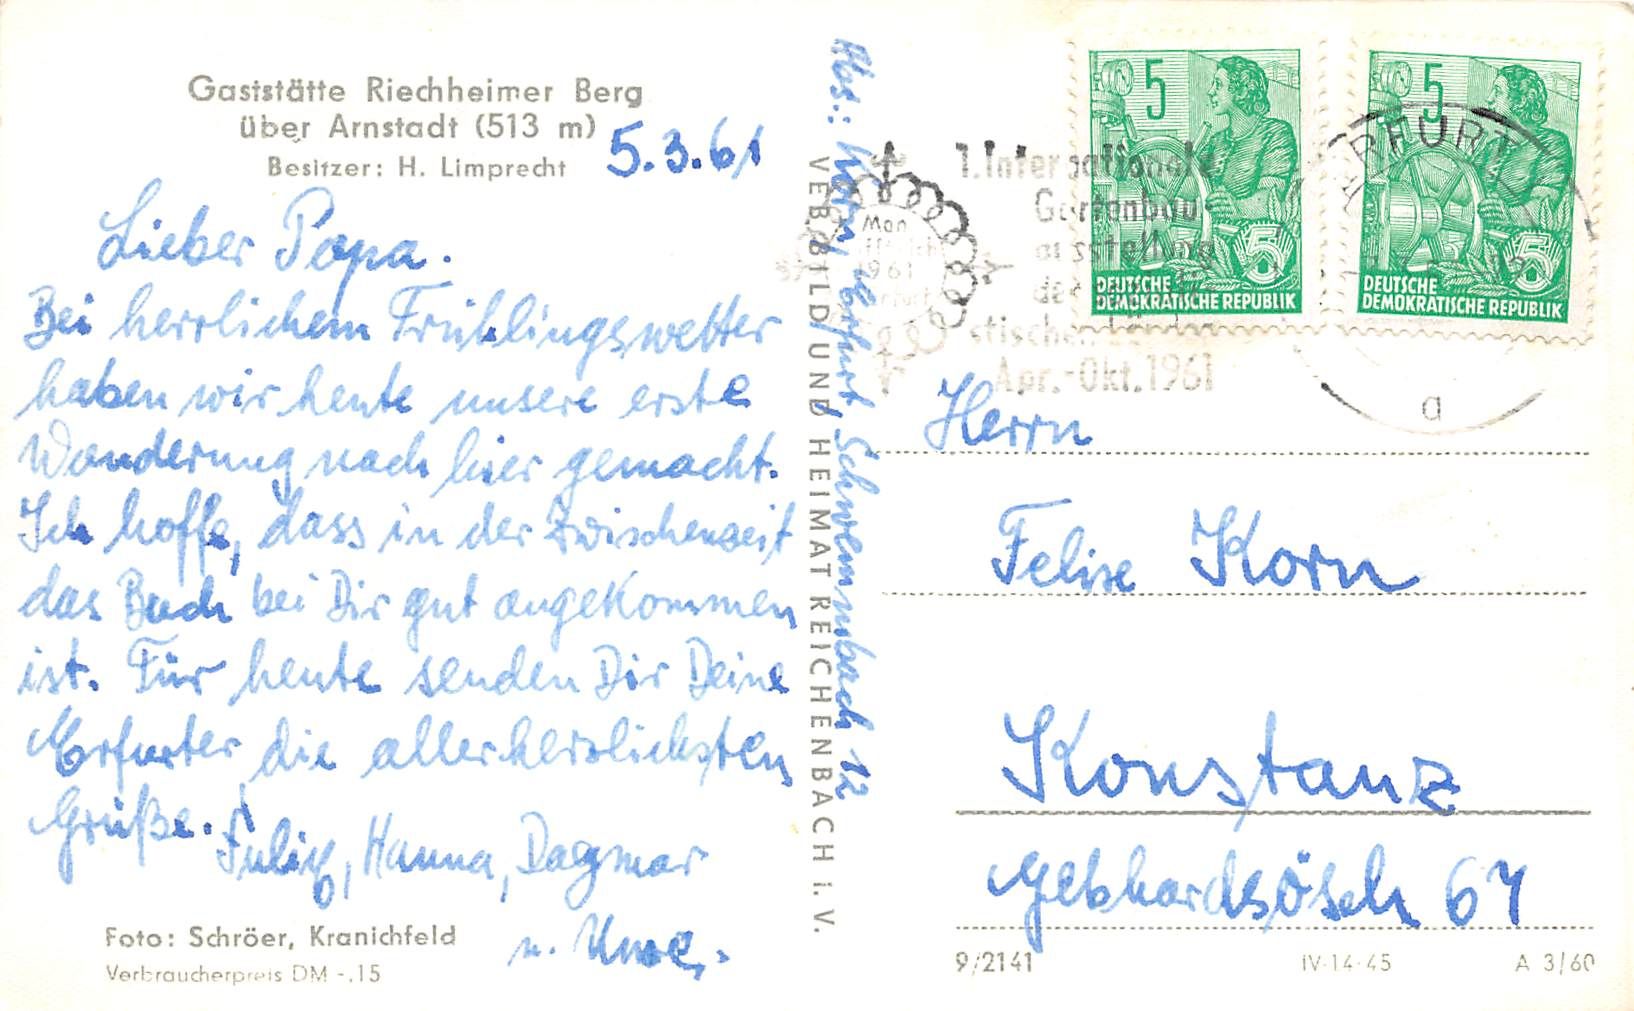 Gaststätte Riechheimer Berg
über Arnstadt (513 m)
Besitzer: H. Limprecht
5.3.61
Lieber Papa.
Bei herrlichem Frühlingswetter
haben wir heute unsere erste
Wanderung nach hier gemacht.
Ich hoffe, dass in der Zwischenzeit
das Buch bei Dir gut angekommen
ist. Für heute senden Dir Deine
Erfurter die allerherzlichsten
Grüße.
Hanna, Dagmar
u. Uwe.
Foto: Schröer, Kranichfeld
Verbraucherpreis DM -.15
Abs.: Korn, Erfurt, Schwemmbach 12
VEB BILD UND HEIMAT REICHENBACH i. V.
1. Internationale
Gartenbau-
ausstellung
der
stischen Länder
Apr.-Okt. 1961
Man
1961
Erfurt
5
5
DEUTSCHE
DEMOKRATISCHE REPUBLIK
5
5
DEUTSCHE
DEMOKRATISCHE REPUBLIK
ERFURT
a
Herrn
Felix Korn
Konstanz
Gebhardsösch 67
9/2141
IV-14-45
A 3/60